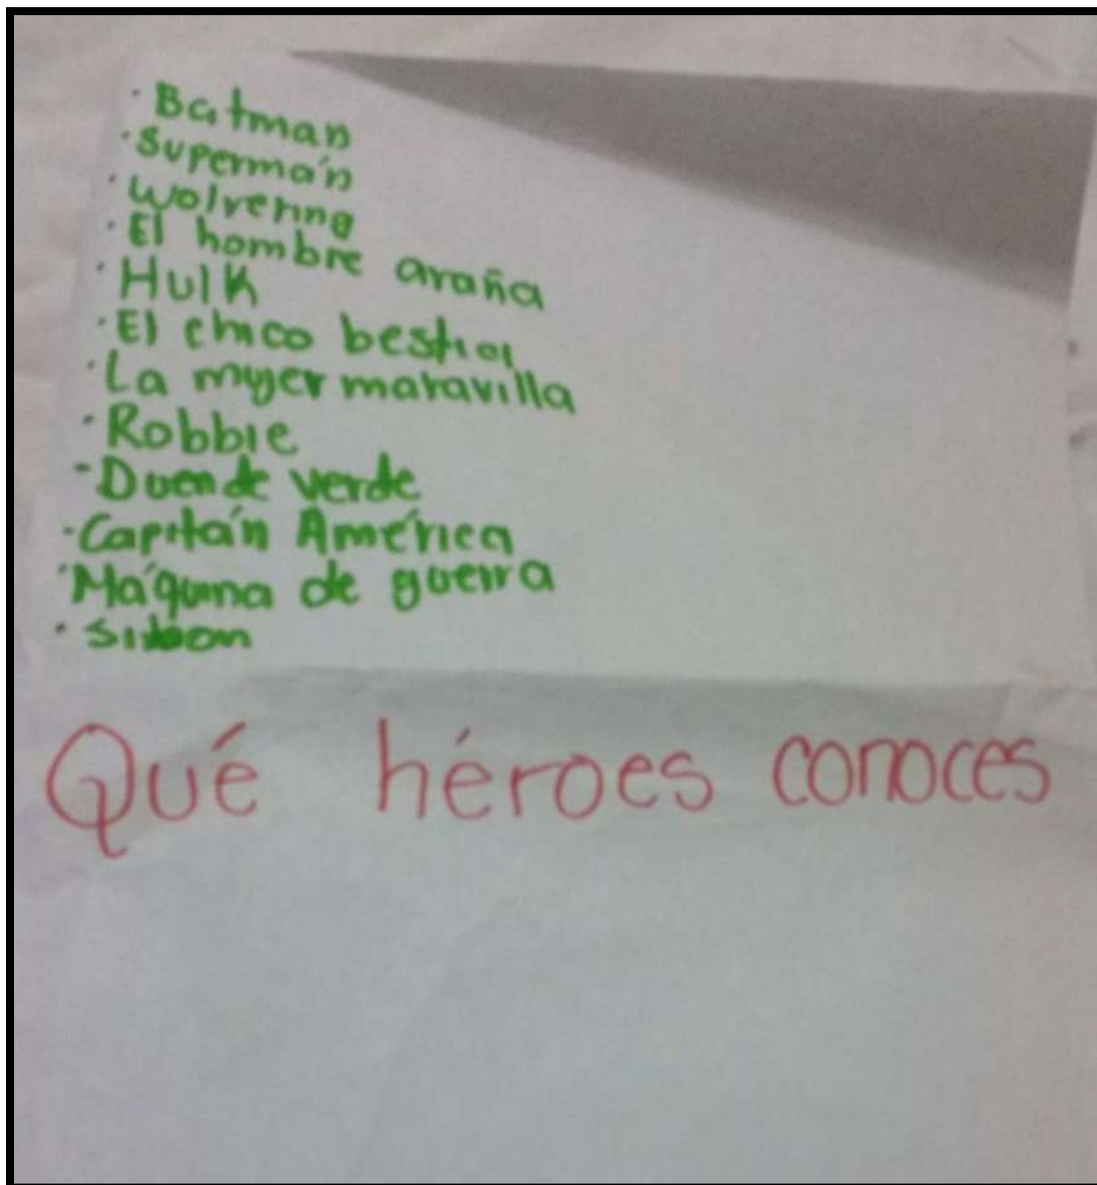 · Batman
· Supermán
· Wolvering
· El hombre araña
· Hulk
· El chico bestial
· La mujer maravilla
· Robbie
- Duende verde
· Capitán América
· Máquina de guerra
Qué héroes conoces